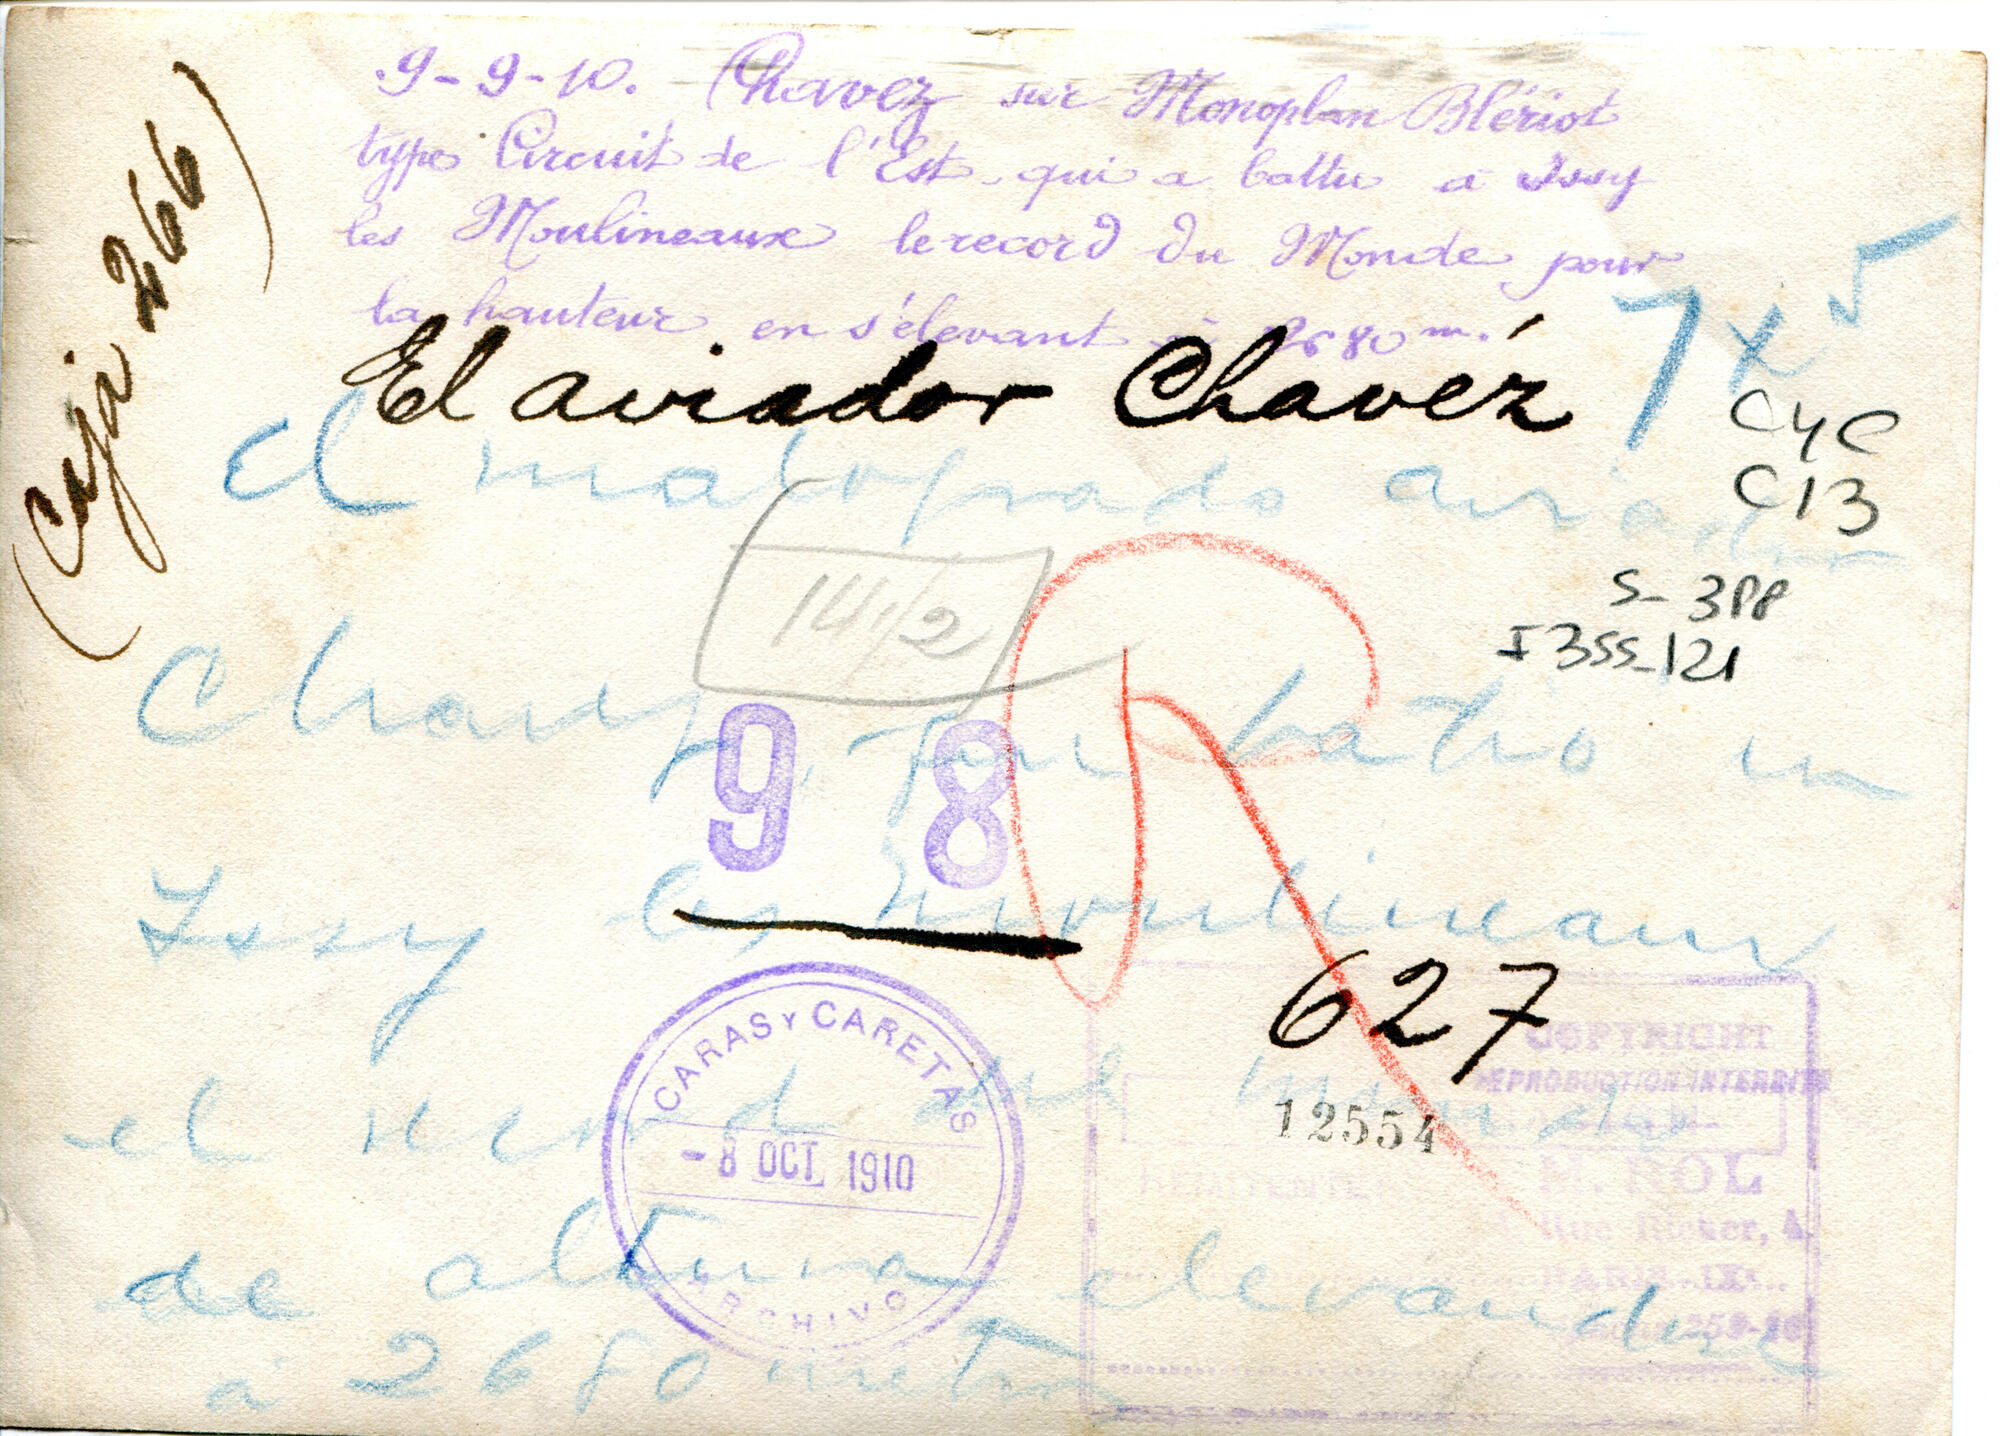 9-9-10. Chavez sur Monoplan Blériot
type Circuit de l'Est qui a battu à Issy
les Moulineaux le record du Monde pour
la hauteur en s'élevant à 2680 m.
(Caja 266)
7 x 5
El aviador Chavéz
CyC
C13
El malogrado aviador
S-388
I355-121
14 1/2
Chavez, que batió en
98
Issy les Moulineaux
627
CARAS Y CARETAS
- 8 OCT. 1910
ARCHIVO
COPYRIGHT
REPRODUCTION INTERDITE
12554
el record del mundo
REMITENTE
ROL
Rue Richer, 4
PARIS. IX
de altura elevandose
à 2680 metros